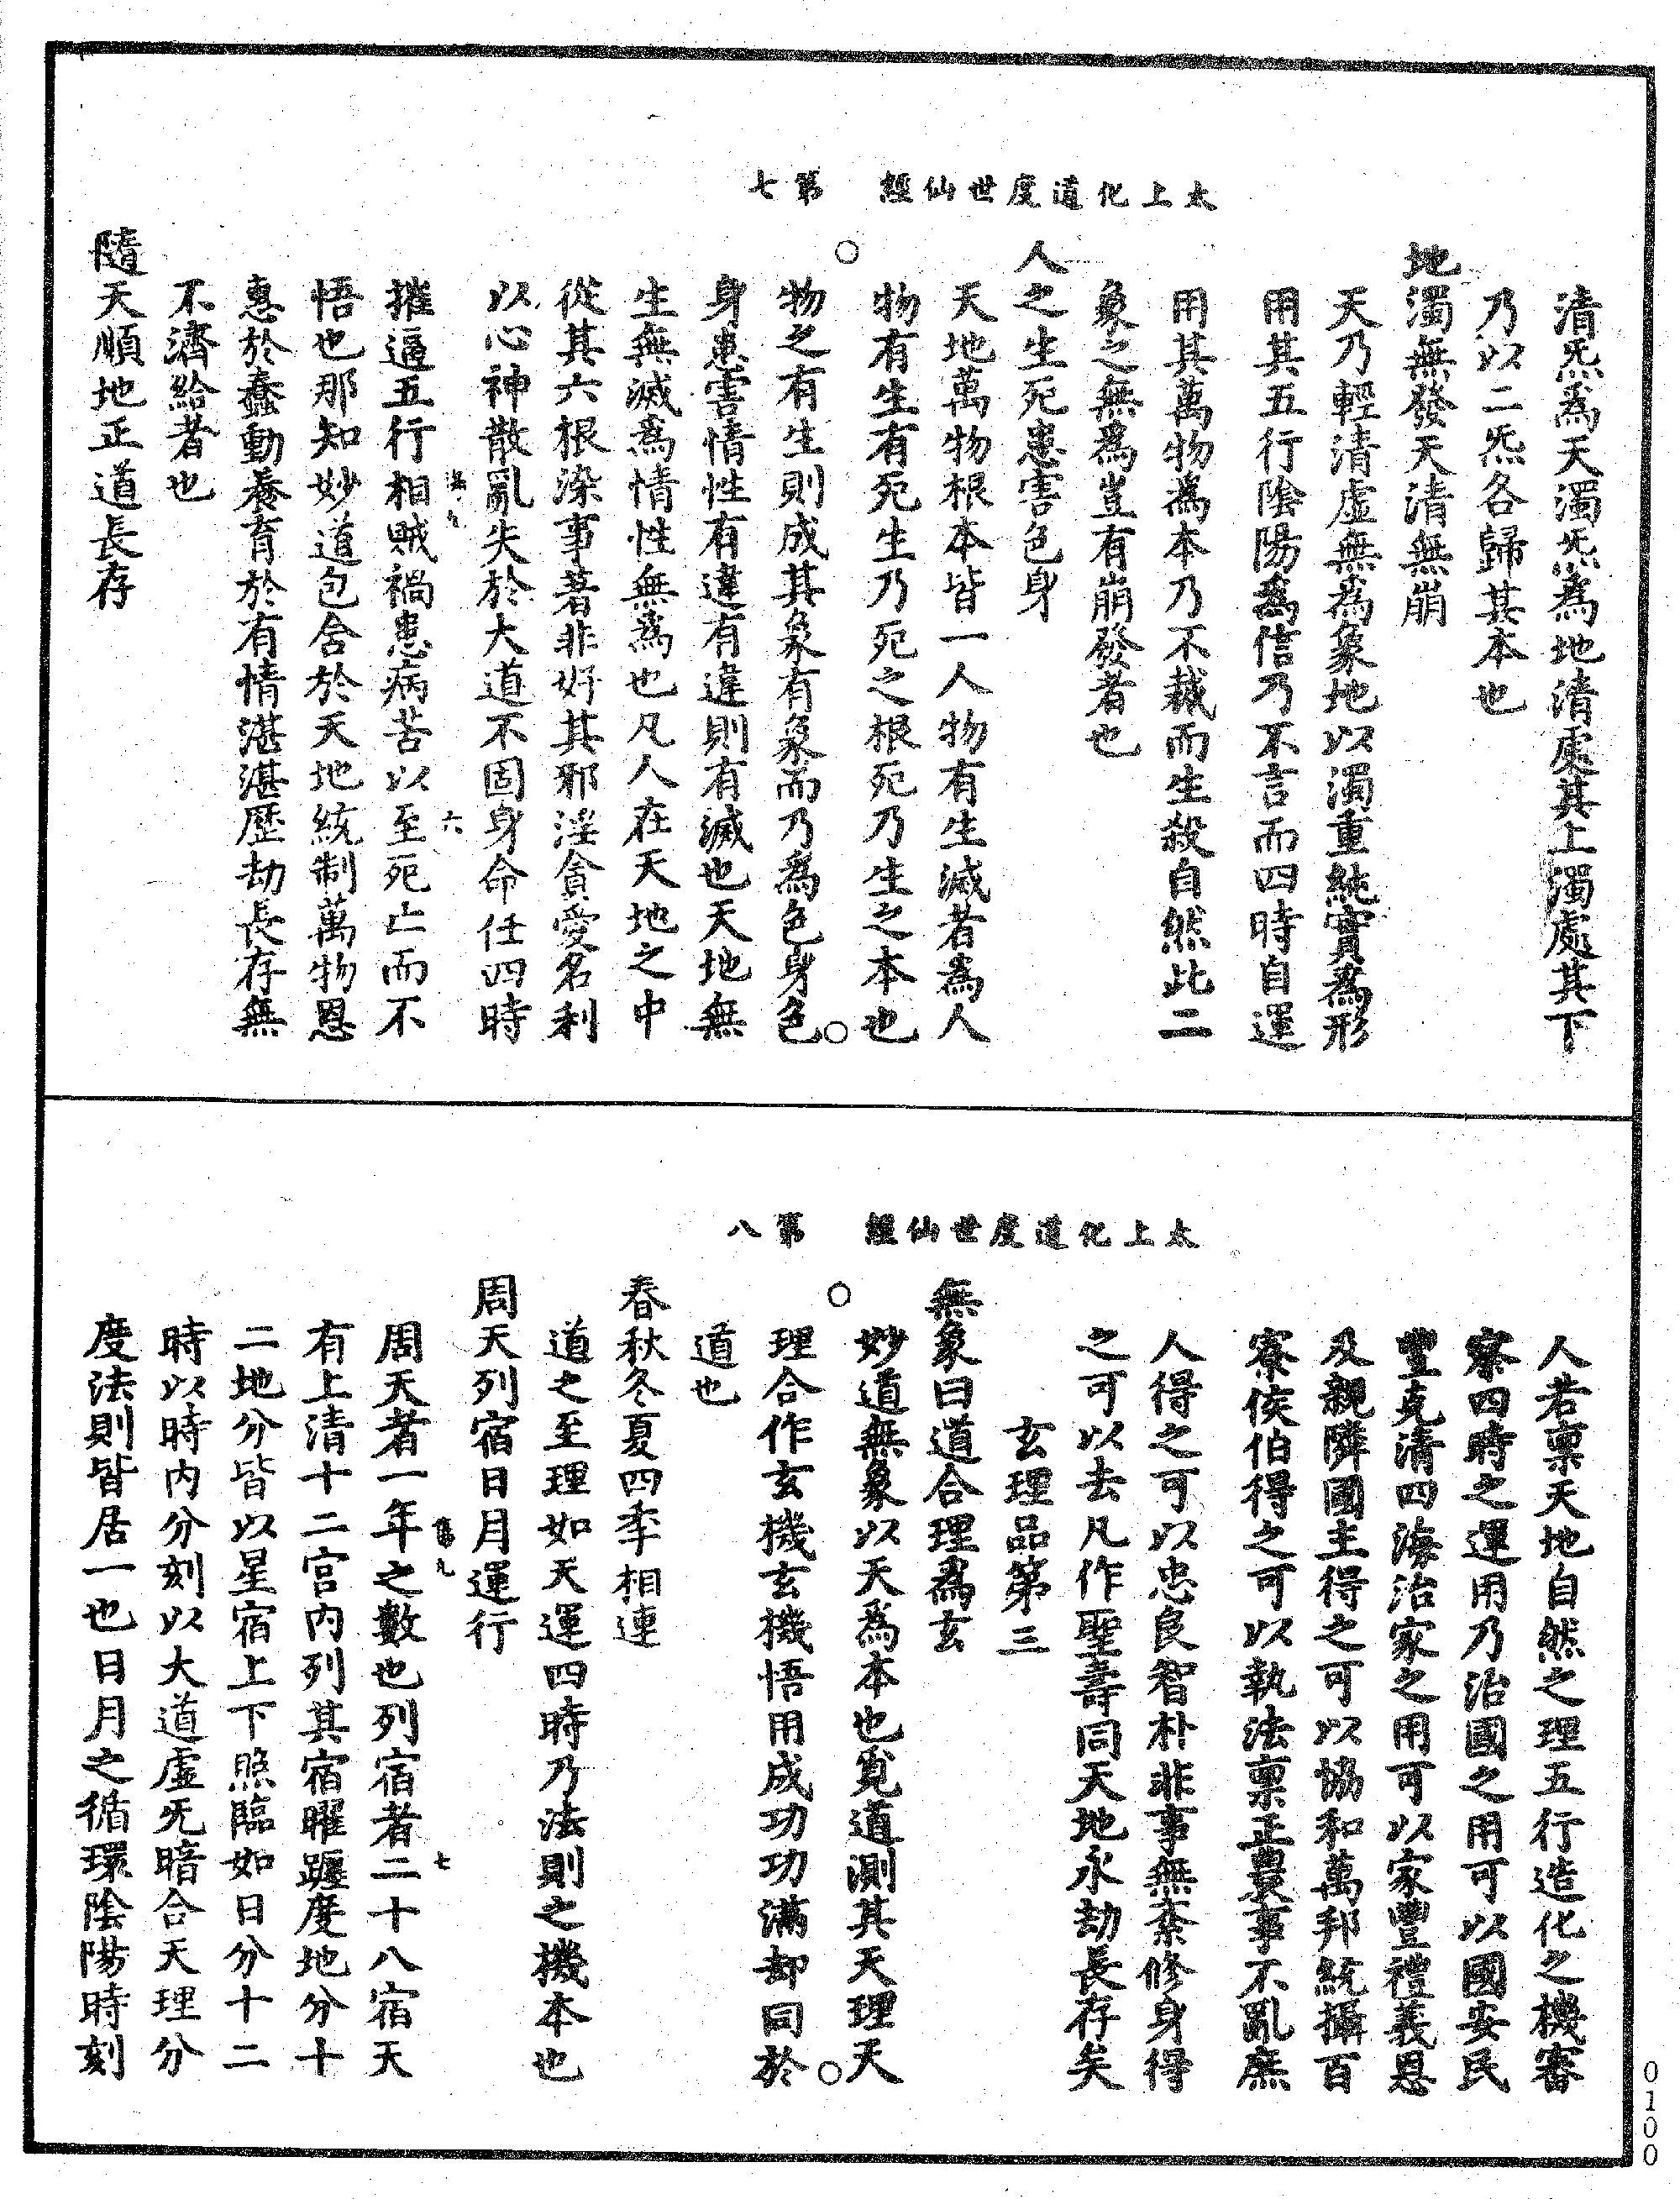 太上化道度世仙經　第七
清炁為天濁炁為地清處其上濁處其下
乃以二炁各歸其本也
地濁無發天清無崩
天乃輕清虛無為象地以濁重純實為形
用其五行陰陽為信乃不言而四時自運
用其萬物為本乃不裁而生殺自然此二
象之無為豈有崩發者也
人之生死患害色身
天地萬物根本皆一人物有生滅者為人
物有生有死生乃死之根死乃生之本也
物之有生則成其象有象而乃為色身色
身患害情性有違有違則有滅也天地無
生無滅為情性無為也凡人在天地之中
從其六根染事著非好其邪淫貪愛名利
以心神散亂失於大道不固身命任四時
摧逼五行相賊禍患病苦以至死亡而不
悟也那知妙道包含於天地統制萬物恩
惠於蠢動養育於有情湛湛歷劫長存無
不濟給者也
隨天順地正道長存
六
太上化道度世仙經　第八
人若稟天地自然之理五行造化之機審
察四時之運用乃治國之用可以國安民
豐克清四海治家之用可以家豐禮義恩
及親隣國主得之可以協和萬邦統攝百
寮侯伯得之可以執法稟正農事不亂庶
人得之可以忠良智朴非事無紊修身得
之可以去凡作聖壽同天地永劫長存矣
玄理品第三
無象曰道合理為玄
妙道無象以天為本也覓道測其天理天
理合作玄機玄機悟用成功功滿却同於
道也
春秋冬夏四季相連
道之至理如天運四時乃法則之機本也
周天列宿日月運行
周天者一年之數也列宿者二十八宿天
有上清十二宮內列其宿曜躔度地分十
二地分皆以星宿上下照臨如日分十二
時以時內分刻以大道虛旡暗合天理分
度法則皆居一也日月之循環陰陽時刻
七
0100